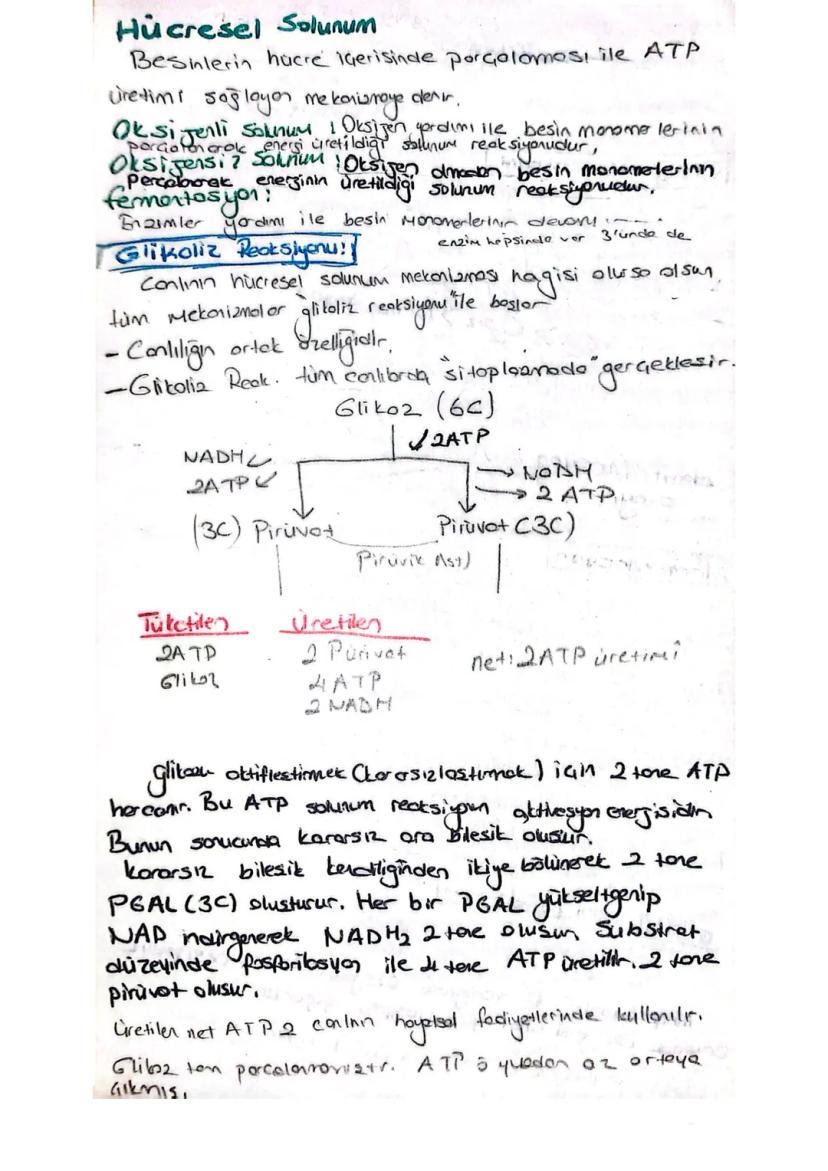 Hücresel Solunum
Besinlerin hücre içerisinde parçalaması ile ATP
üretimi sağlayan mekanizmaya denir.
Oksijenli Solunum : Oksijen yardımı ile besin monomerlerinin
parçalanarak enerji üretildiği solunum reaksiyonudur,
Oksijensiz Solunum : Oksijen olmadan besin monomerlerinin
Parçalanarak enerjinin üretildiği solunum reaksiyonudur.
fermantasyon:
Enzimler yardımı ile besin monomerlerinin devamı ......
enzim hepsinde var 3'ünde de
Glikoliz Reaksiyonu:
Canlının hücresel solunum mekanizması hagisi olursa olsun,
tüm mekanizmalar "glikoliz reaksiyonu" ile başlar
- Canlılığın ortak özelliğidir.
- Glikoliz Reak. tüm canlılarda "sitoplazmada" gerçekleşir.
Glikoz (6C)
2ATP
NADH → NADH
2ATP → 2 ATP
(3C) Pirüvat Pirüvat (3C)
Pirüvik Asit)
Tüketilen Üretilen
2ATP 2 Pürivat net: 2ATP üretimi
Glikoz 4 ATP
2 NADH
glikozu aktifleştirmek (kararsızlaştırmak) için 2 tane ATP
harcanır. Bu ATP solunum reaksiyonun aktivasyon enerjisidir.
Bunun sonucunda kararsız ara bileşik oluşur.
kararsız bileşik kendiliğinden ikiye bölünerek 2 tane
PGAL (3C) oluşturur. Her bir PGAL yükseltgenip
NAD indirgenerek NADH₂ 2 tane oluşur. Substrat
düzeyinde fosforilasyon ile 4 tane ATP üretilir. 2 tane
pirüvat oluşur.
Üretilen net ATP 2 canlının hayatsal faaliyetlerinde kullanılır.
Glikoz tam parçalanmamıştır. ATP o yüzden az ortaya
çıkmış.